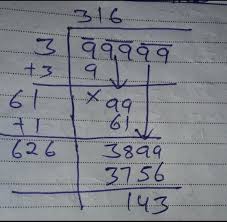 316
3 99999
+3 9
61 × 99
+1 61
626 3899
3756
143